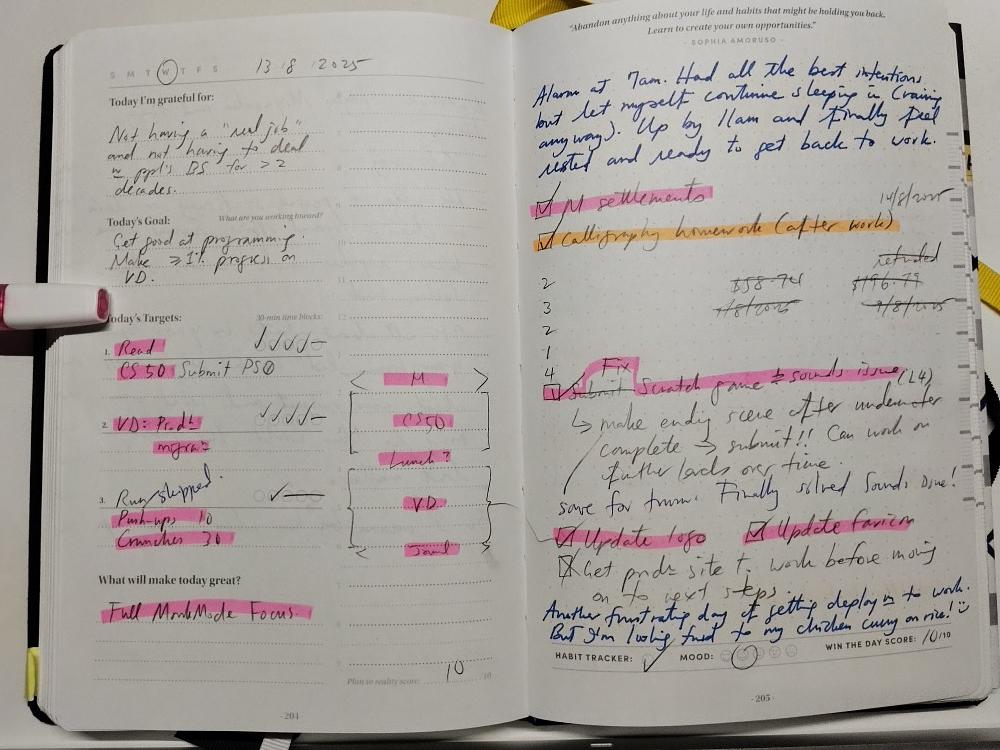 S M T W T F S 13 8 2025
Today I'm grateful for:
Not having a "real job"
and not having to deal
ppl's BS for >2
decades.
Today's Goal: What are you working toward?
Get good at programming.
Make ≥1% progress on
VD.
Today's Targets: 30-min time blocks:
1. Read
CS50 Submit PS0
2. VD:
3. Run skipped.
Push-ups 10
Crunches 30
What will make today great?
Full MonkMode Focus.
M
CS50
Lunch?
VD
Plan to reality score: 10 /10
- 204 -
"Abandon anything about your life and habits that might be holding you back.
Learn to create your own opportunities."
- SOPHIA AMORUSO -
Alarm at 7am. Had all the best intentions
but let myself continue sleeping in (raining
anyway). Up by 11am and finally feel
rested and ready to get back to work.
M settlements
14/8/2025
Calligraphy homework (after work)
refunded
2 $58.74 $196.79
3 9/8/2025
2
1
4 Fix
Submit Scratch game sounds issue (L4)
↳ make ending scene after underwater
complete → submit!! Can work on
further levels over time.
Finally solved sounds issue!
Update logo Update favicon
Get site to work before moving
on to next steps.
Another frustrating day of getting to work.
But I'm looking fwd to my chicken curry on rice!
HABIT TRACKER: ✓ MOOD: WIN THE DAY SCORE: 10/10
- 205 -